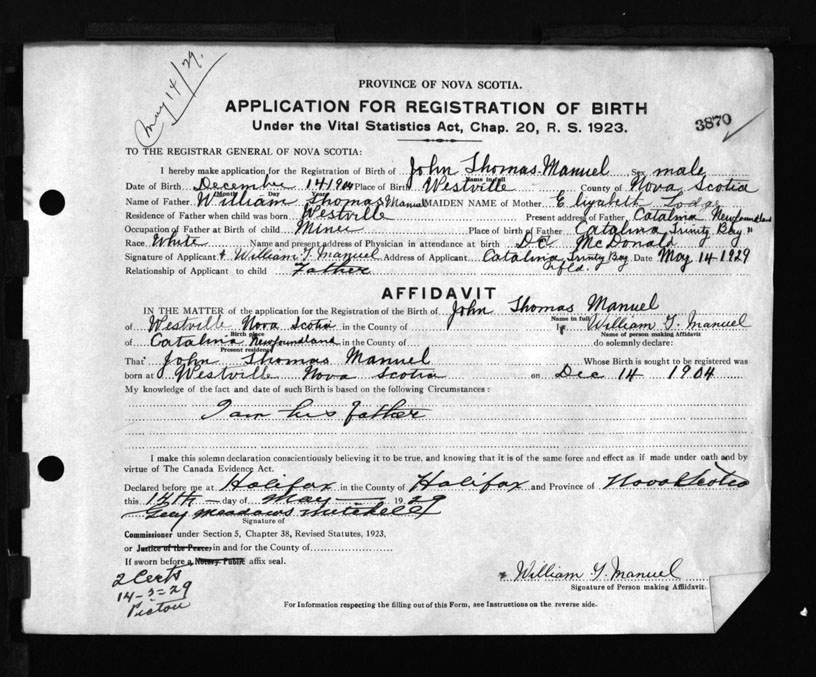 May 14/29.
PROVINCE OF NOVA SCOTIA.
APPLICATION FOR REGISTRATION OF BIRTH
3870
Under the Vital Statistics Act, Chap. 20, R. S. 1923.
TO THE REGISTRAR GENERAL OF NOVA SCOTIA:
I hereby make application for the Registration of Birth of John Thomas Manuel Sex male
Name in full
Date of Birth December 14 1904 Place of Birth Westville County of Nova Scotia
Month Day Year
Name of Father William Thomas Manuel MAIDEN NAME of Mother Elizabeth
Residence of Father when child was born Westville Present address of Father Catalina Newfoundland
Occupation of Father at Birth of child Miner Place of birth of Father Catalina Trinity Bay "
Race White Name and present address of Physician in attendance at birth Dr McDonald
Signature of Applicant William T. Manuel Address of Applicant Catalina Trinity Bay Nfld. Date May 14 1929
Relationship of Applicant to child Father
AFFIDAVIT
IN THE MATTER of the application for the Registration of the Birth of John Thomas Manuel
Name in full
of Westville Nova Scotia in the County of I, William T. Manuel
Birth place Name of person making Affidavit
of Catalina Newfoundland in the County of do solemnly declare:
Present residence
That John Thomas Manuel Whose Birth is sought to be registered was
born at Westville Nova Scotia on Dec 14 1904
My knowledge of the fact and date of such Birth is based on the following Circumstances:
I am his father
I make this solemn declaration conscientiously believing it to be true, and knowing that it is of the same force and effect as if made under oath and by
virtue of The Canada Evidence Act.
Declared before me at Halifax in the County of Halifax and Province of Nova Scotia
this 14th day of May 1929
Guy Meadows Mitchell
Signature of
Commissioner under Section 5, Chapter 38, Revised Statutes, 1923,
or Justice of the Peace, in and for the County of
If sworn before a Notary Public affix seal.
2 Certs
14-5-29
Pictou
William T. Manuel
Signature of Person making Affidavit.
For Information respecting the filling out of this Form, see Instructions on the reverse side.